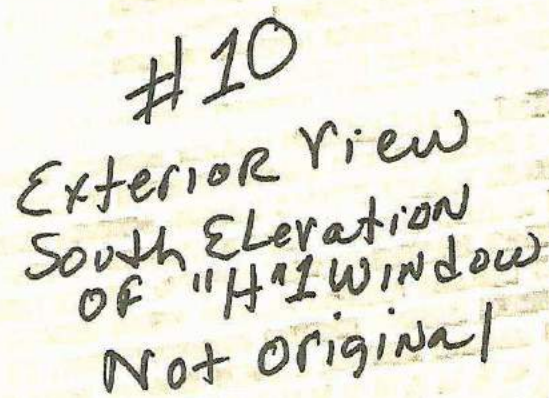 #10
Exterior View
South Elevation
OF "H"1 Window
Not Original